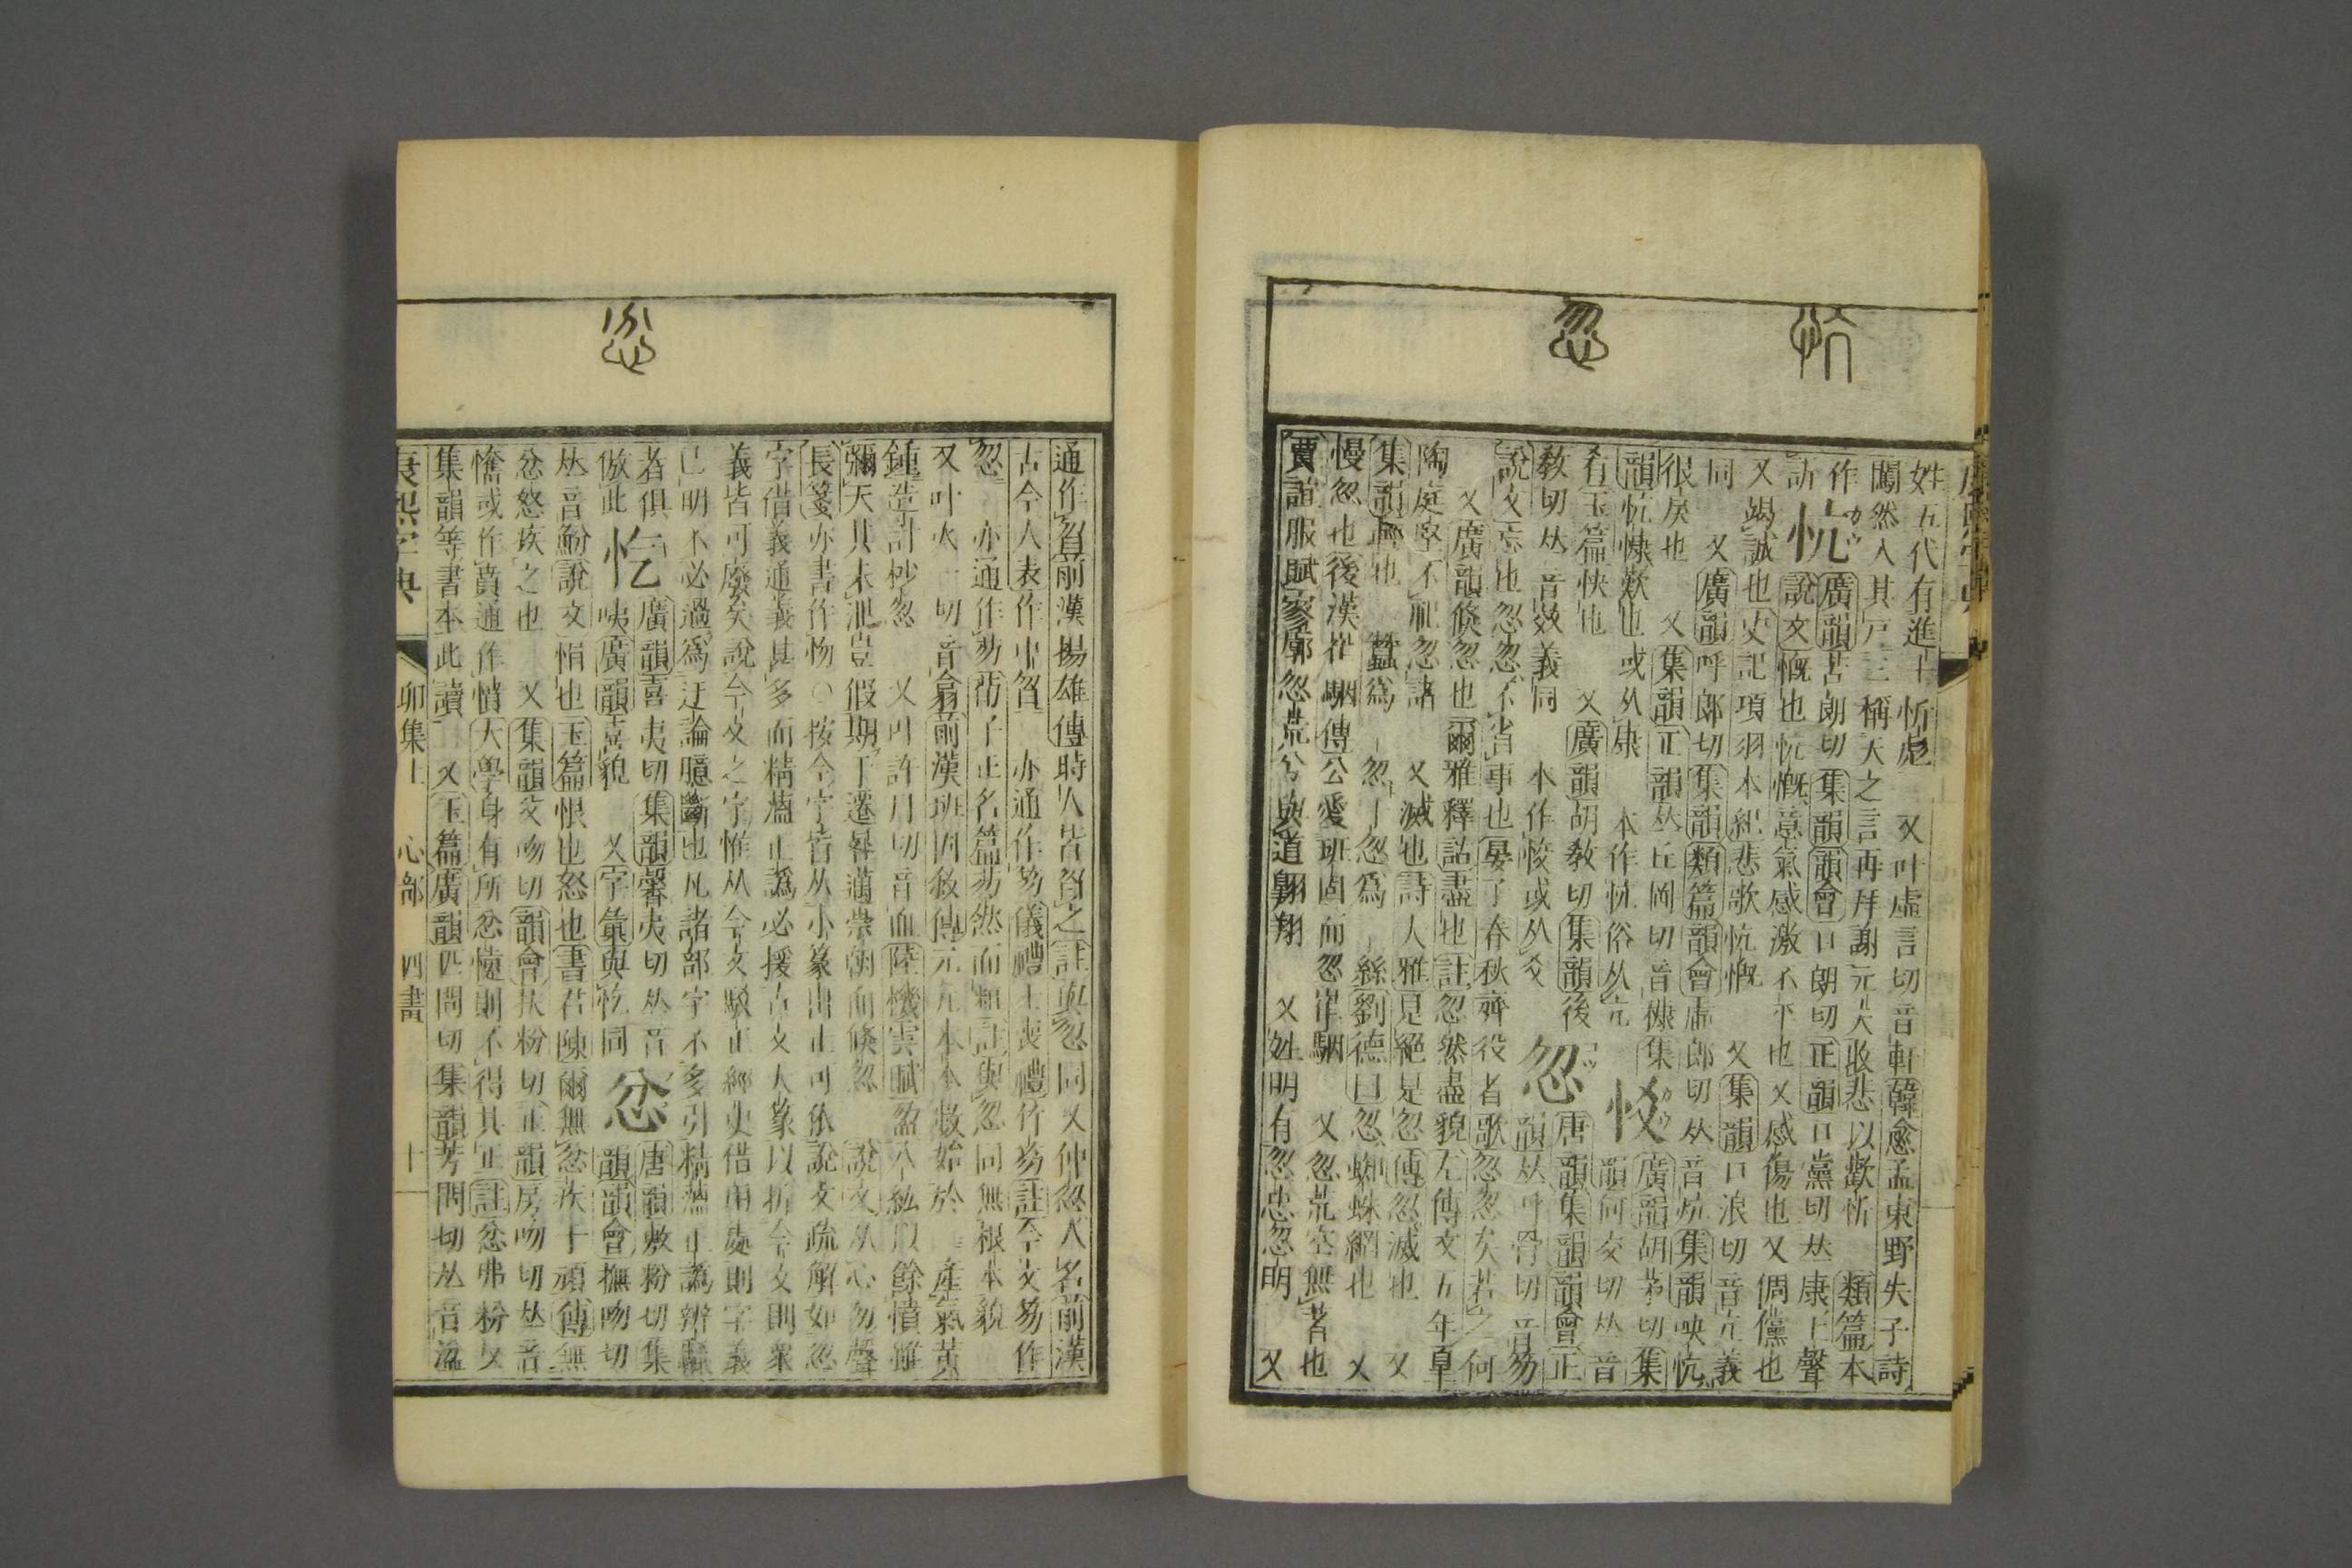 忼
忽
姓五代有進士忻彪 又叶虛言切音軒韓愈孟東野失子詩
闖然入其戸三稱天之言再拜謝元夫收悲以歡忻 類篇本
作忼廣韻苦朗切集韻韻會口朗切正韻口黨切𠀤康上聲
訢 說文慨也忼慨意氣感激不平也又感傷也又倜儻也
又竭誠也史記項羽本紀悲歌忼慨 又集韻口浪切音亢義
同 又廣韻呼郎切集韻類篇韻會虛郎切𠀤音炕集韻映忼
很戾也 又集韻正韻𠀤丘岡切音穅集 廣韻胡茅切集
韻忼慷歎也或从康 本作忼俗从亢 㤊 韻何交切𠀤音
肴玉篇快也 又廣韻胡敎切集韻後 唐韻集韻韻會正
敎切𠀤音效義同 本作恔或从爻 忽 韻𠀤呼骨切音昒
說文忘也忽忽不省事也晏子春秋齊役者歌忽忽矣若之何
又廣韻倏忽也爾雅釋詁盡也註忽然盡貌左傳文五年臯
陶庭堅不祀忽諸 又滅也詩大雅是絕是忽傳忽滅也 又
集韻輕也 蠶爲一忽十忽爲一絲劉德曰忽蜘蛛網也 又
慢忽也後漢崔駰傳公愛班固而忽崔駰 又忽荒空無著也
賈誼服賦寥廓忽荒兮與道翱翔 又姓明有忽忠忽明 又
忿
通作曶前漢揚雄傳時人皆曶之註與忽同又仲忽人名前漢
古今人表作中曶 亦通作昒儀禮士喪禮竹笏註今文笏作
忽 亦通作芴荀子正名篇芴然而粗註與忽同無根本貌
又叶火一切音翕前漢班固敘傳元元本本數始於一產氣黃
鍾造計秒忽 又叶許月切音血陸機雲賦盈八紘以餘憤雖
彌天其未泄豈假期于遷晷邁崇朝而倏忽 說文从心勿聲
長箋亦書作㫚○按今字皆从小篆出正可依說文疏解如忽
字借義通義甚多而精蘊正譌必援古文大篆以折今文則眾
義皆可廢矣說今文之字惟从今文駁正經史借用處則字義
已明不必過爲迂論臆斷也凡諸部字不多引精蘊正譌辨駁
者俱 廣韻喜夷切集韻馨夷切𠀤音 唐韻敷粉切集
倣此 㐹 咦廣韻喜貌 又字彙與忔同 忿 韻韻會撫吻切
𠀤音魵說文悁也玉篇恨也怒也書君陳爾無忿疾于頑傳無
忿怒疾之也 又集韻父吻切韻會扶粉切正韻房吻切𠀤音
憤或作賁通作憤大學身有所忿懥則不得其正註忿弗粉反
集韻等書本此讀 又玉篇廣韻匹問切集韻芳問切𠀤音湓
康熙字典 卯集上 心部 四畫 十